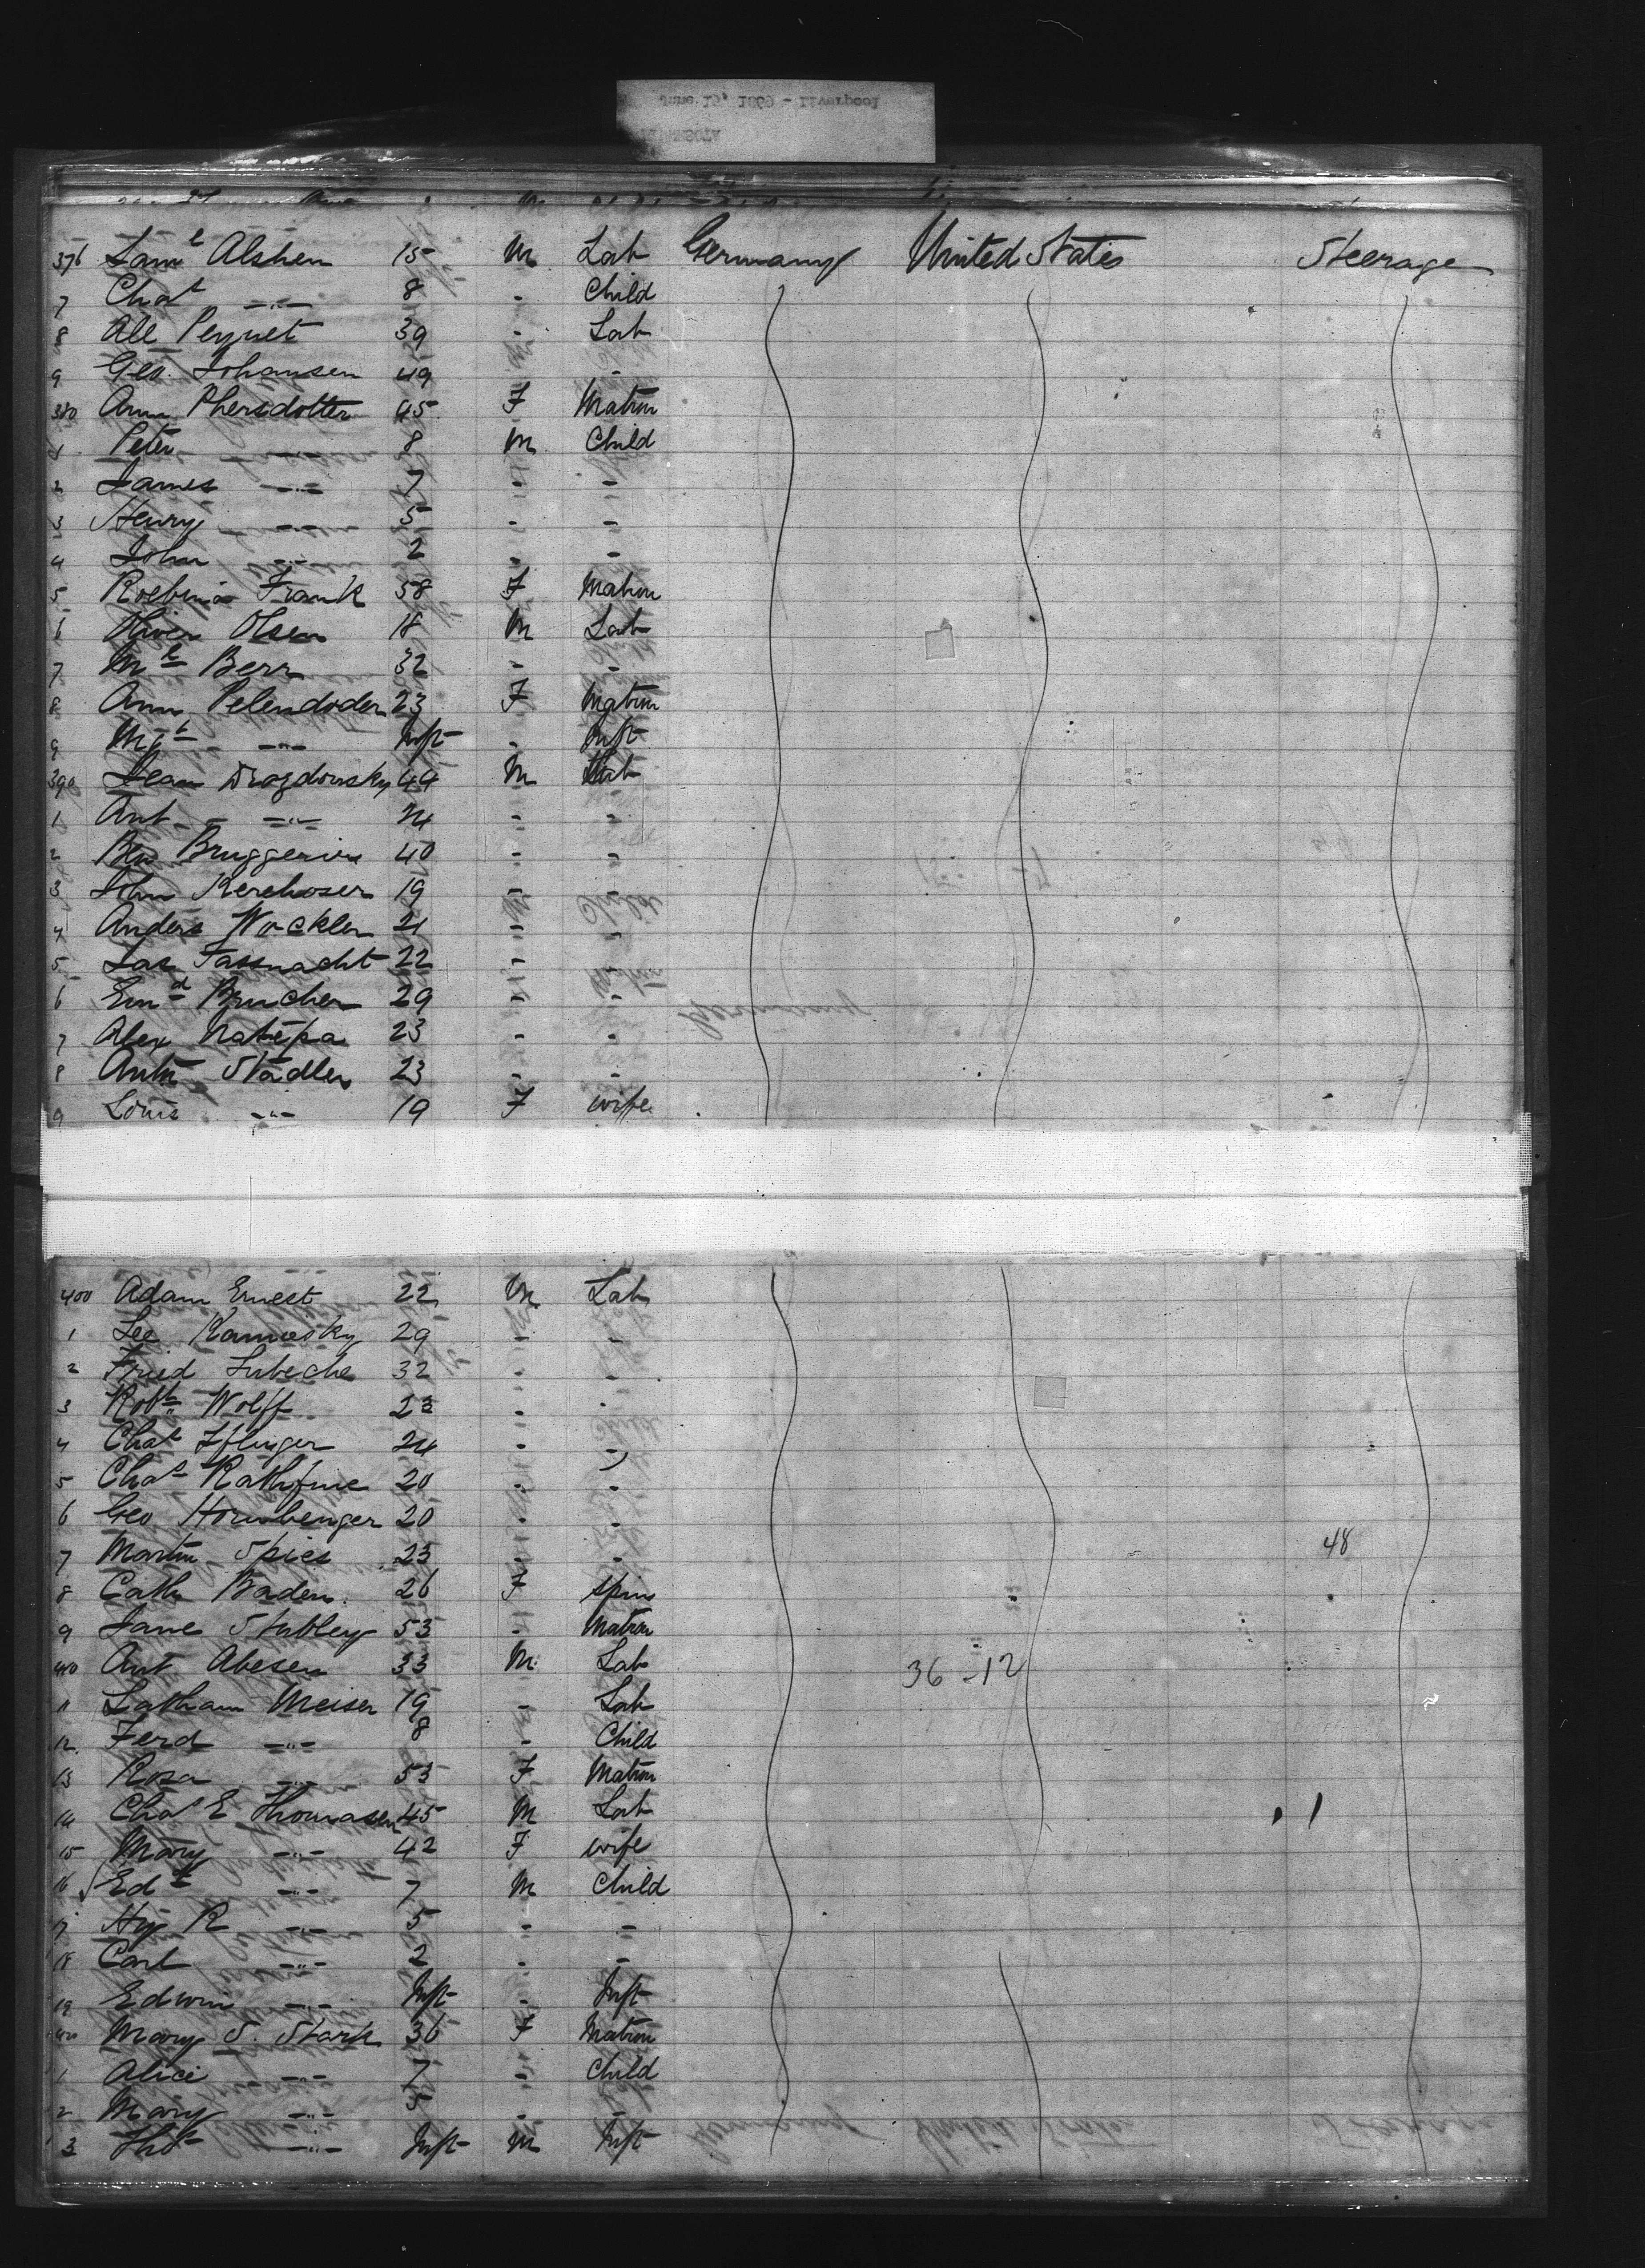 June 15, 1869 - Liverpool
376 Saml Alshen 15 M Lab Germany United States Steerage
7 Chas -"- 8 - Child
8 All Peynet 39 - Lab
9 Geo. Johansen 49 -
380 Ann Phersdotter 45 F Matron
1 Peter -"- 8 M Child
2 James -"- 7 - -
3 Henry -"- 5 - -
4 John -"- 2 - -
5 Roebina Frank 58 F Matron
6 Oliver Olsen 18 M Lab
7 Ml Berr 32 - -
8 Ann Pelendoder 23 F Matron
9 Mgt -"- Inft - Inft
390 Jean Drozdowsky 44 M Lab
1 Ant -"- 24 - -
2 Ben Bruggerive 40 - -
3 John Kerchoser 19 - -
4 Anders Wockler 21 - -
5 Jas Fassnacht 22 - -
6 Emd Brucher 29 - -
7 Alex Natepa 23 - -
8 Antn Stadler 23 - -
9 Louis -"- 19 F wife
400 Adam Ernest 22 M Lab
1 Lee Kamosky 29 - -
2 Fried Lubeche 32 - -
3 Robt Wolff 23 - -
4 Chas Iflinger 24 - -
5 Chas Rathfine 20 - -
6 Geo Hornbenger 20 - -
7 Martin Spies 23 - - 48
8 Cath Baden 26 F spin
9 Jane Stubley 53 - Matron
410 Ant Abesen 33 M Lab 36 - 12
11 Latham Meiser 19 - Lab
12 Ferd -"- 8 - Child
13 Rosa -"- 53 F Matron
14 Chas E Thomasen 45 M Lab
15 Mary -"- 42 F wife
16 Edd -"- 7 M Child
17 Hy R -"- 5 - -
18 Carl -"- 2 - -
19 Edwin -"- Inft - Inft
420 Mary S. Stark 36 F Matron
1 Alice -"- 7 - Child
2 Mary -"- 5 - -
3 Thos -"- Inft M Inft